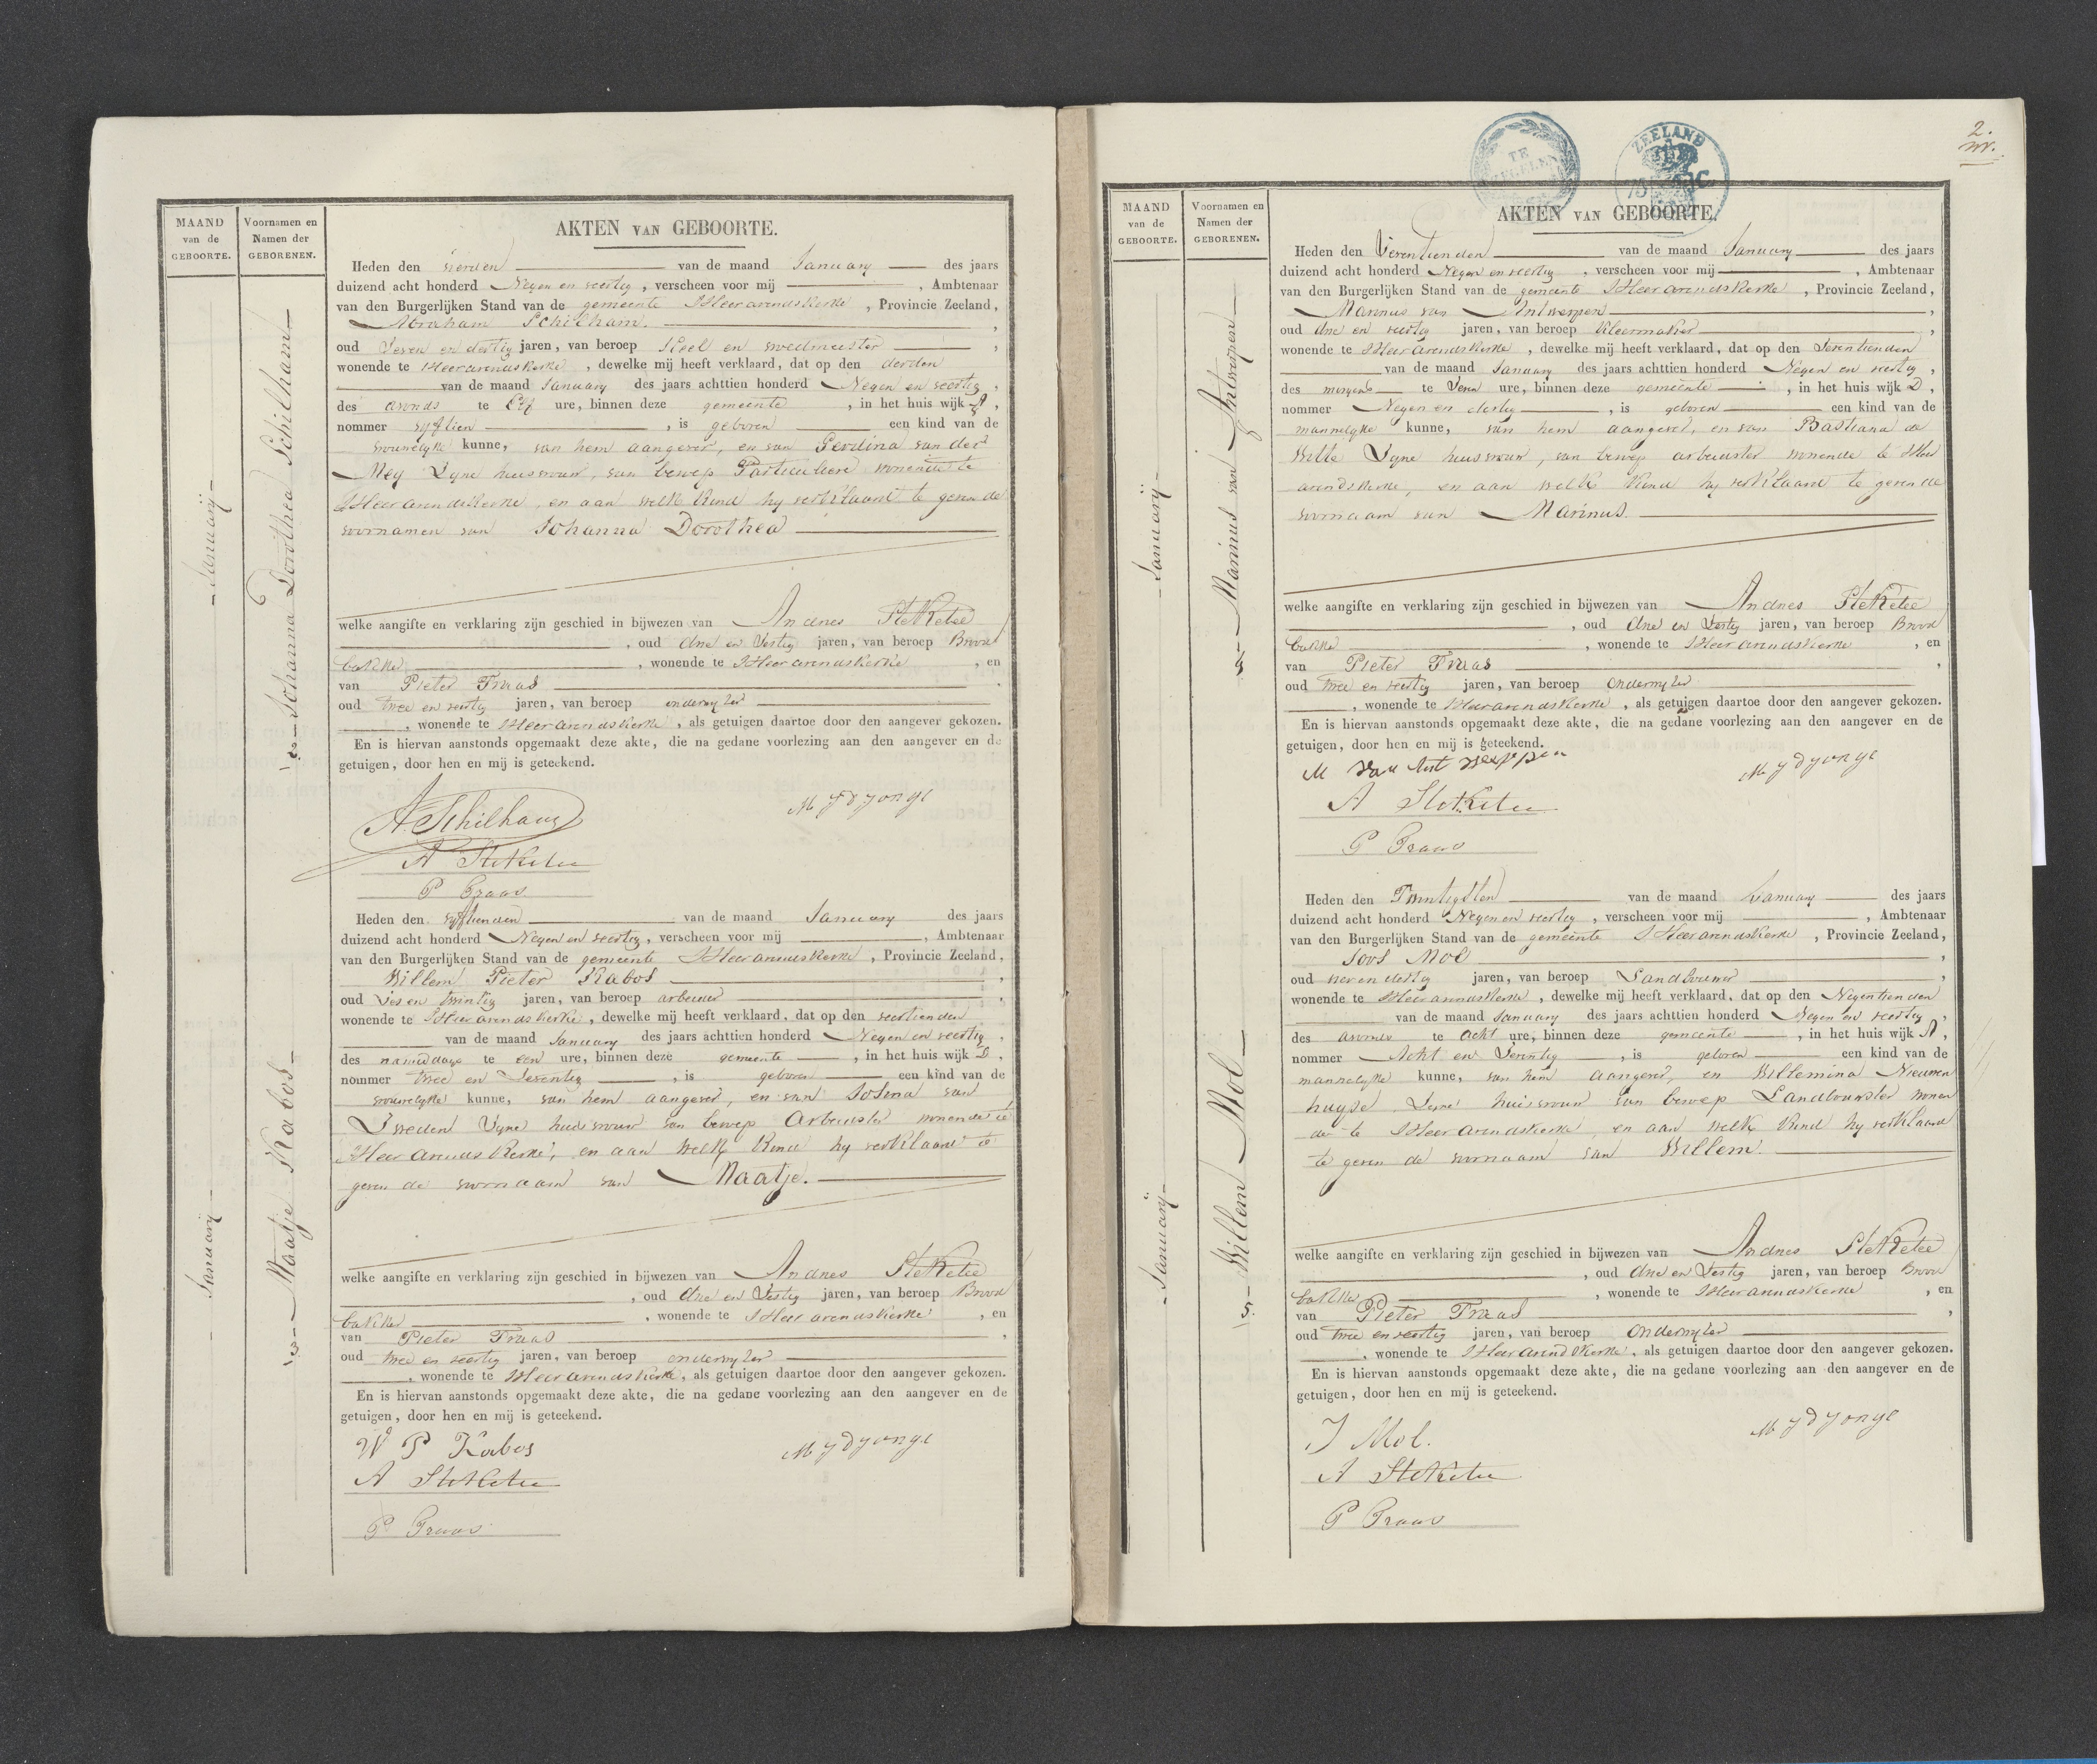 MAAND
van de
GEBOORTE.
Voornamen en
Namen der
GEBORENEN.
AKTEN VAN GEBOORTE.
- Januarij -
- 2 - Johanna Dorothea Schilham -
Heden den vierden van de maand January des jaars
duizend acht honderd Negen en veertig, verscheen voor mij , Ambtenaar
van den Burgerlijken Stand van de gemeente SHeerarendskerke, Provincie Zeeland,
Abraham Schilham. ,
oud Seven en dertig jaren, van beroep Heel en vroedmeester ,
wonende te SHeerarendskerke, dewelke mij heeft verklaard, dat op den derden
van de maand January des jaars achttien honderd Negen en veertig,
des avonds te Elf ure, binnen deze gemeente , in het huis wijk A,
nommer vyftien , is geboren een kind van de
vrouwelyke kunne, van hem aangever, en van Perdina van der
Mey Zyne huisvrouw, van beroep Particuliere wonende te
SHeerarendskerke, en aan welk kind hy verklaard te geven de
voornamen van Johanna Dorothea
welke aangifte en verklaring zijn geschied in bijwezen van Andries SteKetee
, oud drie en Sestig jaren, van beroep Brood
bakker , wonende te SHeerarendskerke , en
van Pieter Fraas ,
oud twee en veertig jaren, van beroep onderwyzer
, wonende te SHeerarendskerke, als getuigen daartoe door den aangever gekozen.
En is hiervan aanstonds opgemaakt deze akte, die na gedane voorlezing aan den aangever en de
getuigen, door hen en mij is geteekend.
A. Schilham
M J D Jonge
A SteKetee
P Fraas
- Januarij -
- 3 - Maatje Kabos -
Heden den vyftienden van de maand January des jaars
duizend acht honderd Negen en veertig, verscheen voor mij , Ambtenaar
van den Burgerlijken Stand van de gemeente SHeerarendskerke, Provincie Zeeland,
Willem Pieter Kabos ,
oud Ses en twintig jaren, van beroep arbeider
wonende te SHeerarendskerke, dewelke mij heeft verklaard, dat op den veertienden
van de maand January des jaars achttien honderd Negen en veertig,
des namiddags te een ure, binnen deze gemeente , in het huis wijk D,
nommer twee en Seventig , is geboren een kind van de
vrouwelyke kunne, van hem aangever, en van Josina van
Iweden Zyne huisvrouw van beroep Arbeidster wonende te
SHeerarendskerke, en aan welk kind hy verklaard te
geven de voornaam van Maatje.
welke aangifte en verklaring zijn geschied in bijwezen van Andries SteKetee
, oud drie en Sestig jaren, van beroep Brood
bakker , wonende te SHeerarendskerke , en
van Pieter Fraas ,
oud twee en veertig jaren, van beroep onderwyzer
, wonende te SHeerarendskerke, als getuigen daartoe door den aangever gekozen.
En is hiervan aanstonds opgemaakt deze akte, die na gedane voorlezing aan den aangever en de
getuigen, door hen en mij is geteekend.
W P Kabos
M J D Jonge
A SteKetee
P Fraas
2.
TE
ZEGELEN
ZEELAND
MAAND
van de
GEBOORTE.
Voornamen en
Namen der
GEBORENEN.
AKTEN VAN GEBOORTE.
- Januarij -
- 4 - Marinus van Antwerpen -
Heden den Seventienden van de maand January des jaars
duizend acht honderd Negen en veertig, verscheen voor mij , Ambtenaar
van den Burgerlijken Stand van de gemeente SHeerarendskerke, Provincie Zeeland,
Marinus van Antwerpen ,
oud drie en veertig jaren, van beroep Kleermaker ,
wonende te SHeerarendskerke, dewelke mij heeft verklaard, dat op den Seventienden
van de maand January des jaars achttien honderd Negen en veertig,
des morgens te Seven ure, binnen deze gemeente , in het huis wijk D,
nommer Negen en dertig , is geboren een kind van de
mannelyke kunne, van hem aangever, en van Bastiana de
Witte Zyne huisvrouw, van beroep arbeidster wonende te SHeer
arendskerke, en aan welk kind hy verklaard te geven de
voornaam van Marinus.
welke aangifte en verklaring zijn geschied in bijwezen van Andries SteKetee
, oud drie en Sestig jaren, van beroep Brood
bakker , wonende te SHeerarendskerke , en
van Pieter Fraas ,
oud twee en veertig jaren, van beroep onderwyzer
, wonende te SHeerarendskerke, als getuigen daartoe door den aangever gekozen.
En is hiervan aanstonds opgemaakt deze akte, die na gedane voorlezing aan den aangever en de
getuigen, door hen en mij is geteekend.
M van Ant werppen
M J D Jonge
A SteKetee
P Fraas
- Januarij -
- 5 - Willem Mol -
Heden den Twintigsten van de maand January des jaars
duizend acht honderd Negen en veertig, verscheen voor mij , Ambtenaar
van den Burgerlijken Stand van de gemeente SHeerarendskerke, Provincie Zeeland,
Joos Mol ,
oud vier en dertig jaren, van beroep Landbouwer ,
wonende te SHeerarendskerke, dewelke mij heeft verklaard, dat op den Negentienden
van de maand January des jaars achttien honderd Negen en veertig,
des avonds te acht ure, binnen deze gemeente , in het huis wijk A,
nommer Acht en Seventig , is geboren een kind van de
mannelyke kunne, van hem aangever, en Willemina Nieuwen
huyse Zyne huisvrouw van beroep Landbouwster wonen
de te SHeerarendskerke, en aan welk kind hy verklaard
te geven de voornaam van Willem.
welke aangifte en verklaring zijn geschied in bijwezen van Andries SteKetee
, oud drie en Sestig jaren, van beroep Brood
bakker , wonende te SHeerarendskerke , en
van Pieter Fraas ,
oud twee en veertig jaren, van beroep Onderwyzer
, wonende te SHeerarendskerke, als getuigen daartoe door den aangever gekozen.
En is hiervan aanstonds opgemaakt deze akte, die na gedane voorlezing aan den aangever en de
getuigen, door hen en mij is geteekend.
J Mol.
M J D Jonge
A SteKetee
P Fraas